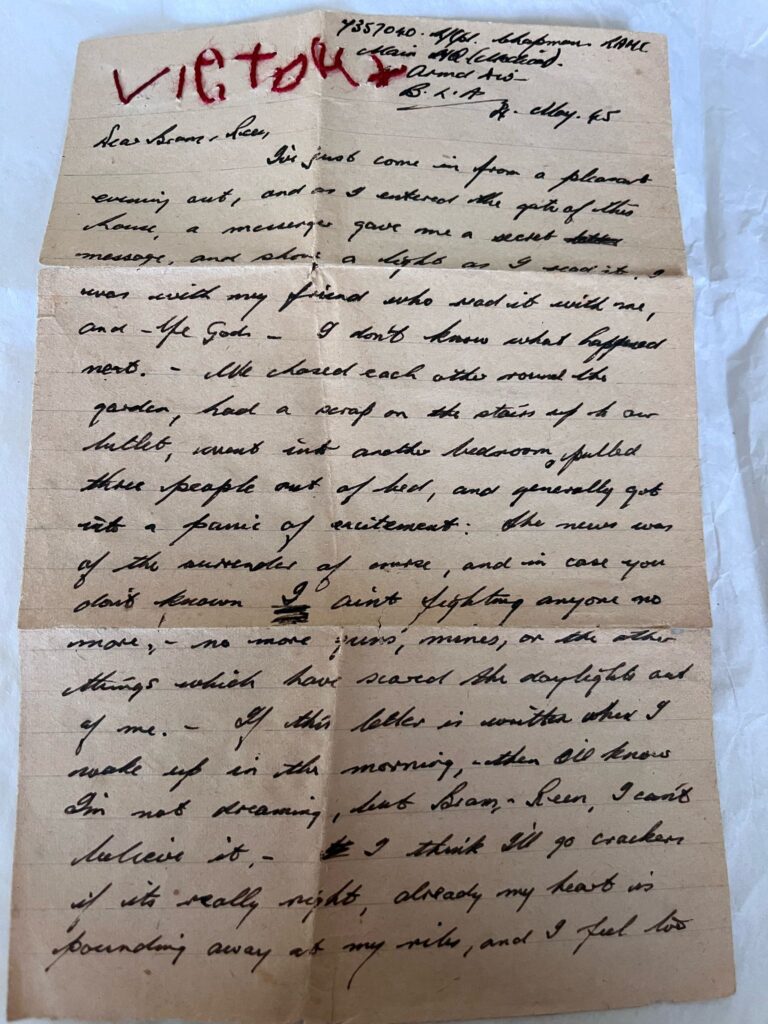 VICTORY
7357040. Cpl. Chapman RAMC
Main HQ (Medical).
Armd Div
B. L. A
May. 45
Dear Bram, Reen,
I've just come in from a pleasant
evening out, and as I entered the gate of this
house, a messenger gave me a secret
message, and shone a light as I read it. I
was with my friend who read it with me,
and - Ye Gods - I don't know what happened
next. - We chased each other round the
garden, had a scrap on the stairs up to our
billet, went into another bedroom, pulled
three people out of bed, and generally got
in a panic of excitement: The news was
of the surrender of course, and in case you
don't known I ain't fighting anyone no
more, - no more guns, mines, or the other
things which have scared the daylights out
of me. - If this letter is written when I
wake up in the morning, - then I'll know
I'm not dreaming, but Bram, - Reen, I can't
believe it, - I think I'll go crackers
if its really right, already my heart is
pounding away at my ribs, and I feel too